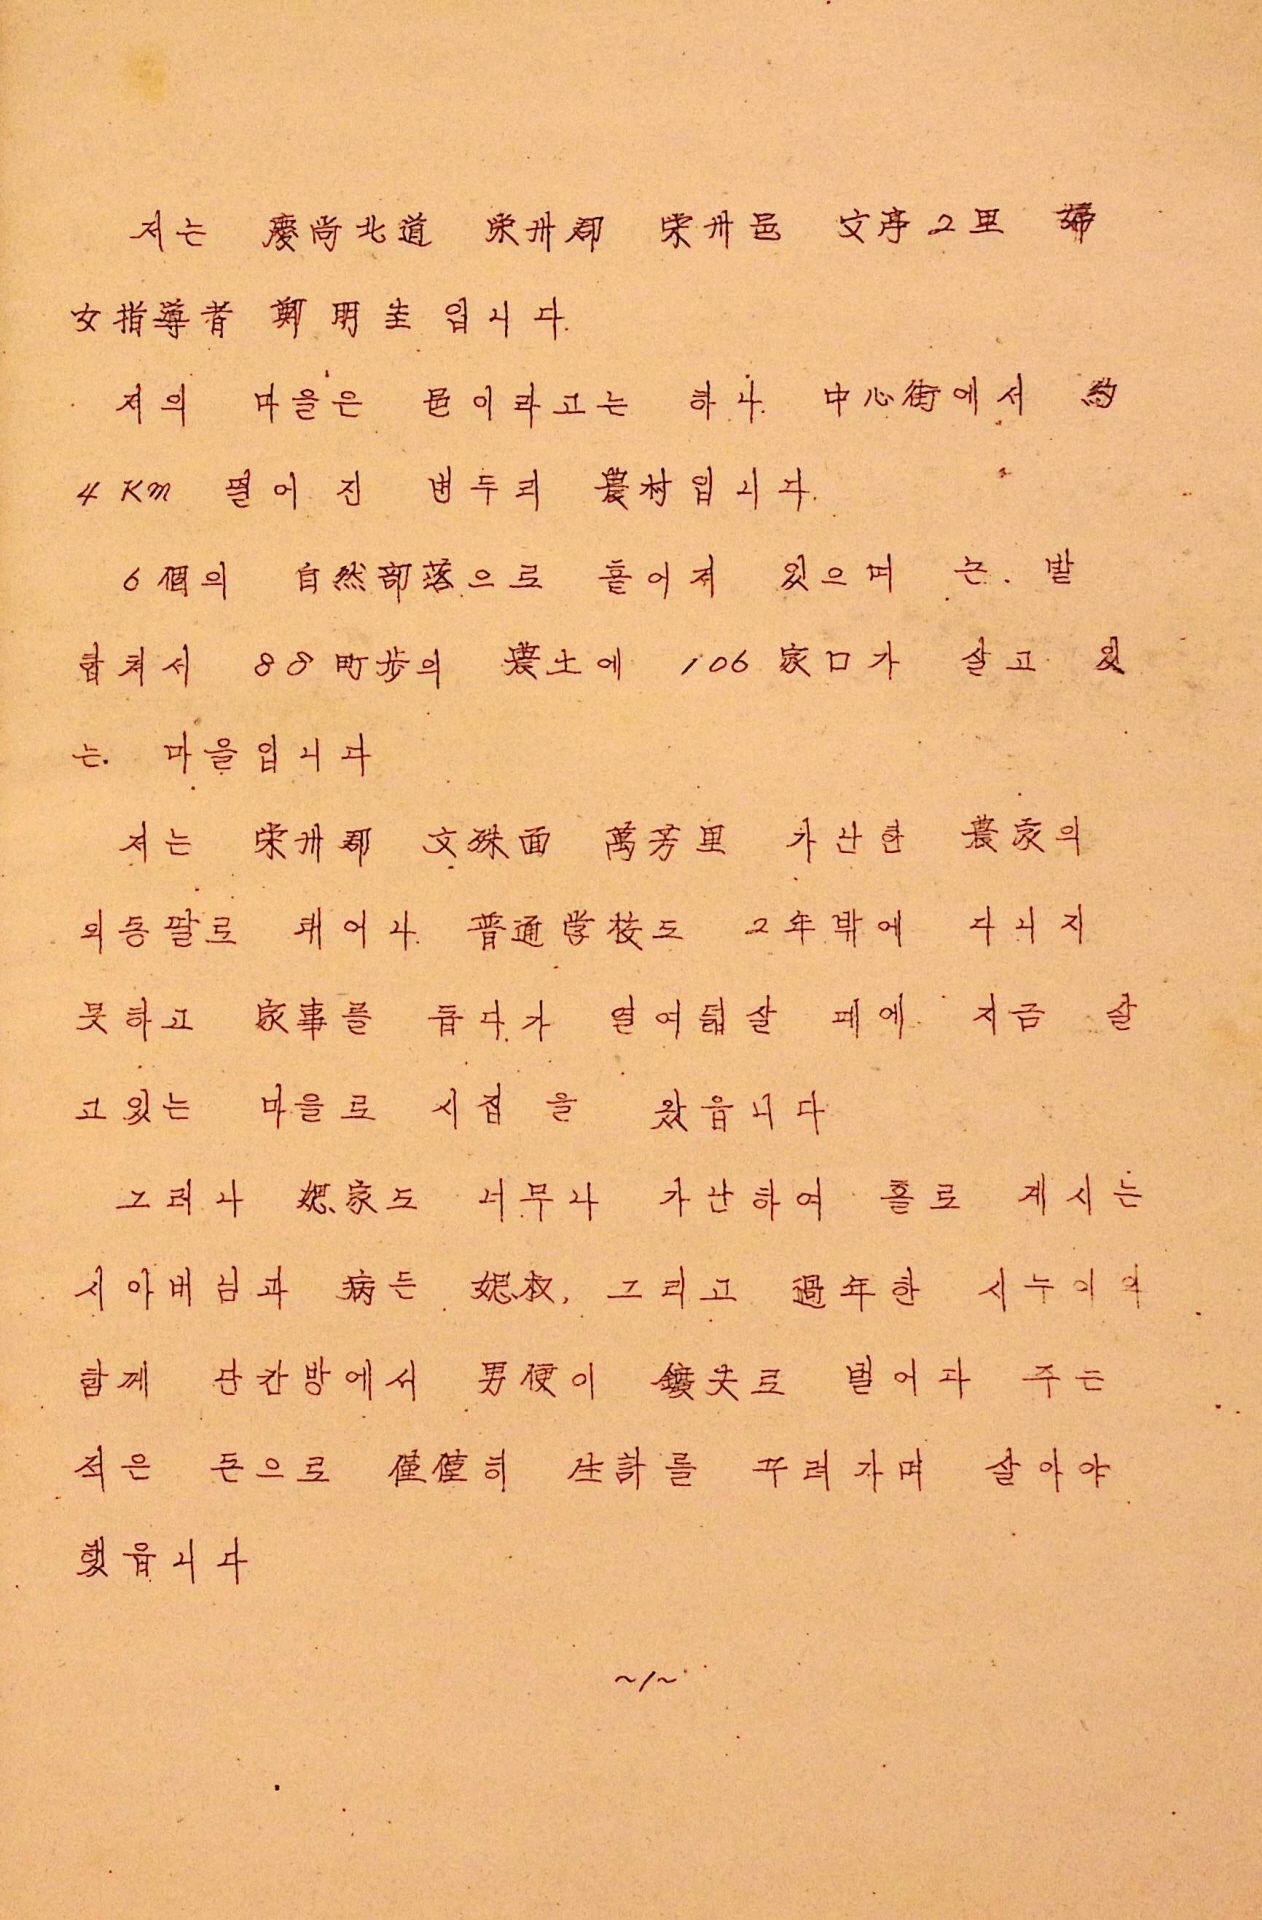 저는 慶尙北道 榮州郡 榮州邑 文亭2里 婦
女指導者 鄭明圭입니다.
저의 마을은 邑이라고는 하나 中心街에서 約
4KM 떨어진 변두리 農村입니다.
6個의 自然部落으로 흩어져 있으며 논. 밭
합쳐서 88町步의 農土에 106家口가 살고 있
는 마을입니다
저는 榮州郡 文殊面 萬芳里 가난한 農家의
외동딸로 태어나 普通学校도 2年밖에 다니지
못하고 家事를 돕다가 열여덟살 때에 지금 살
고있는 마을로 시집을 왔읍니다
그러나 媤家도 너무나 가난하여 홀로 계시는
시아버님과 病든 媤叔, 그리고 過年한 시누이와
함께 단칸방에서 男便이 鑛夫로 벌어다 주는
적은 돈으로 僅僅히 生計를 꾸려가며 살아야
했읍니다
~1~